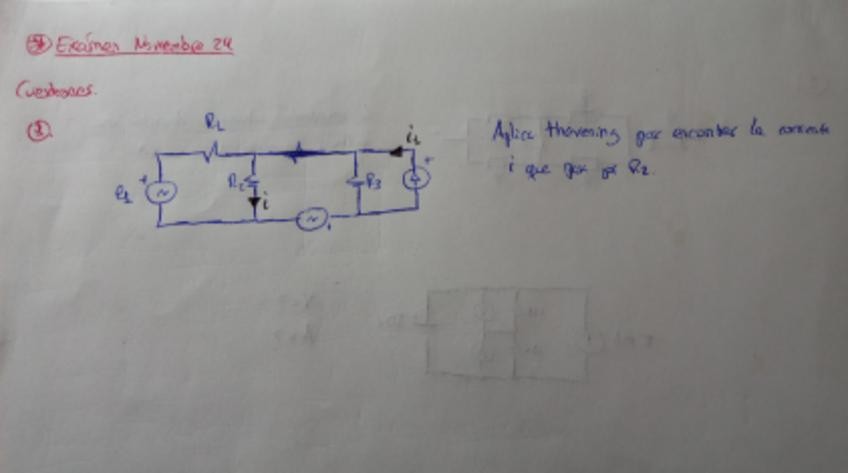 Exámen Noviembre 24
Cuestiones.
①
R1
i1
R2
i
R3
e1
+
+
+
Aplica thevening par encontrar la corriente
i que pasa por R2.